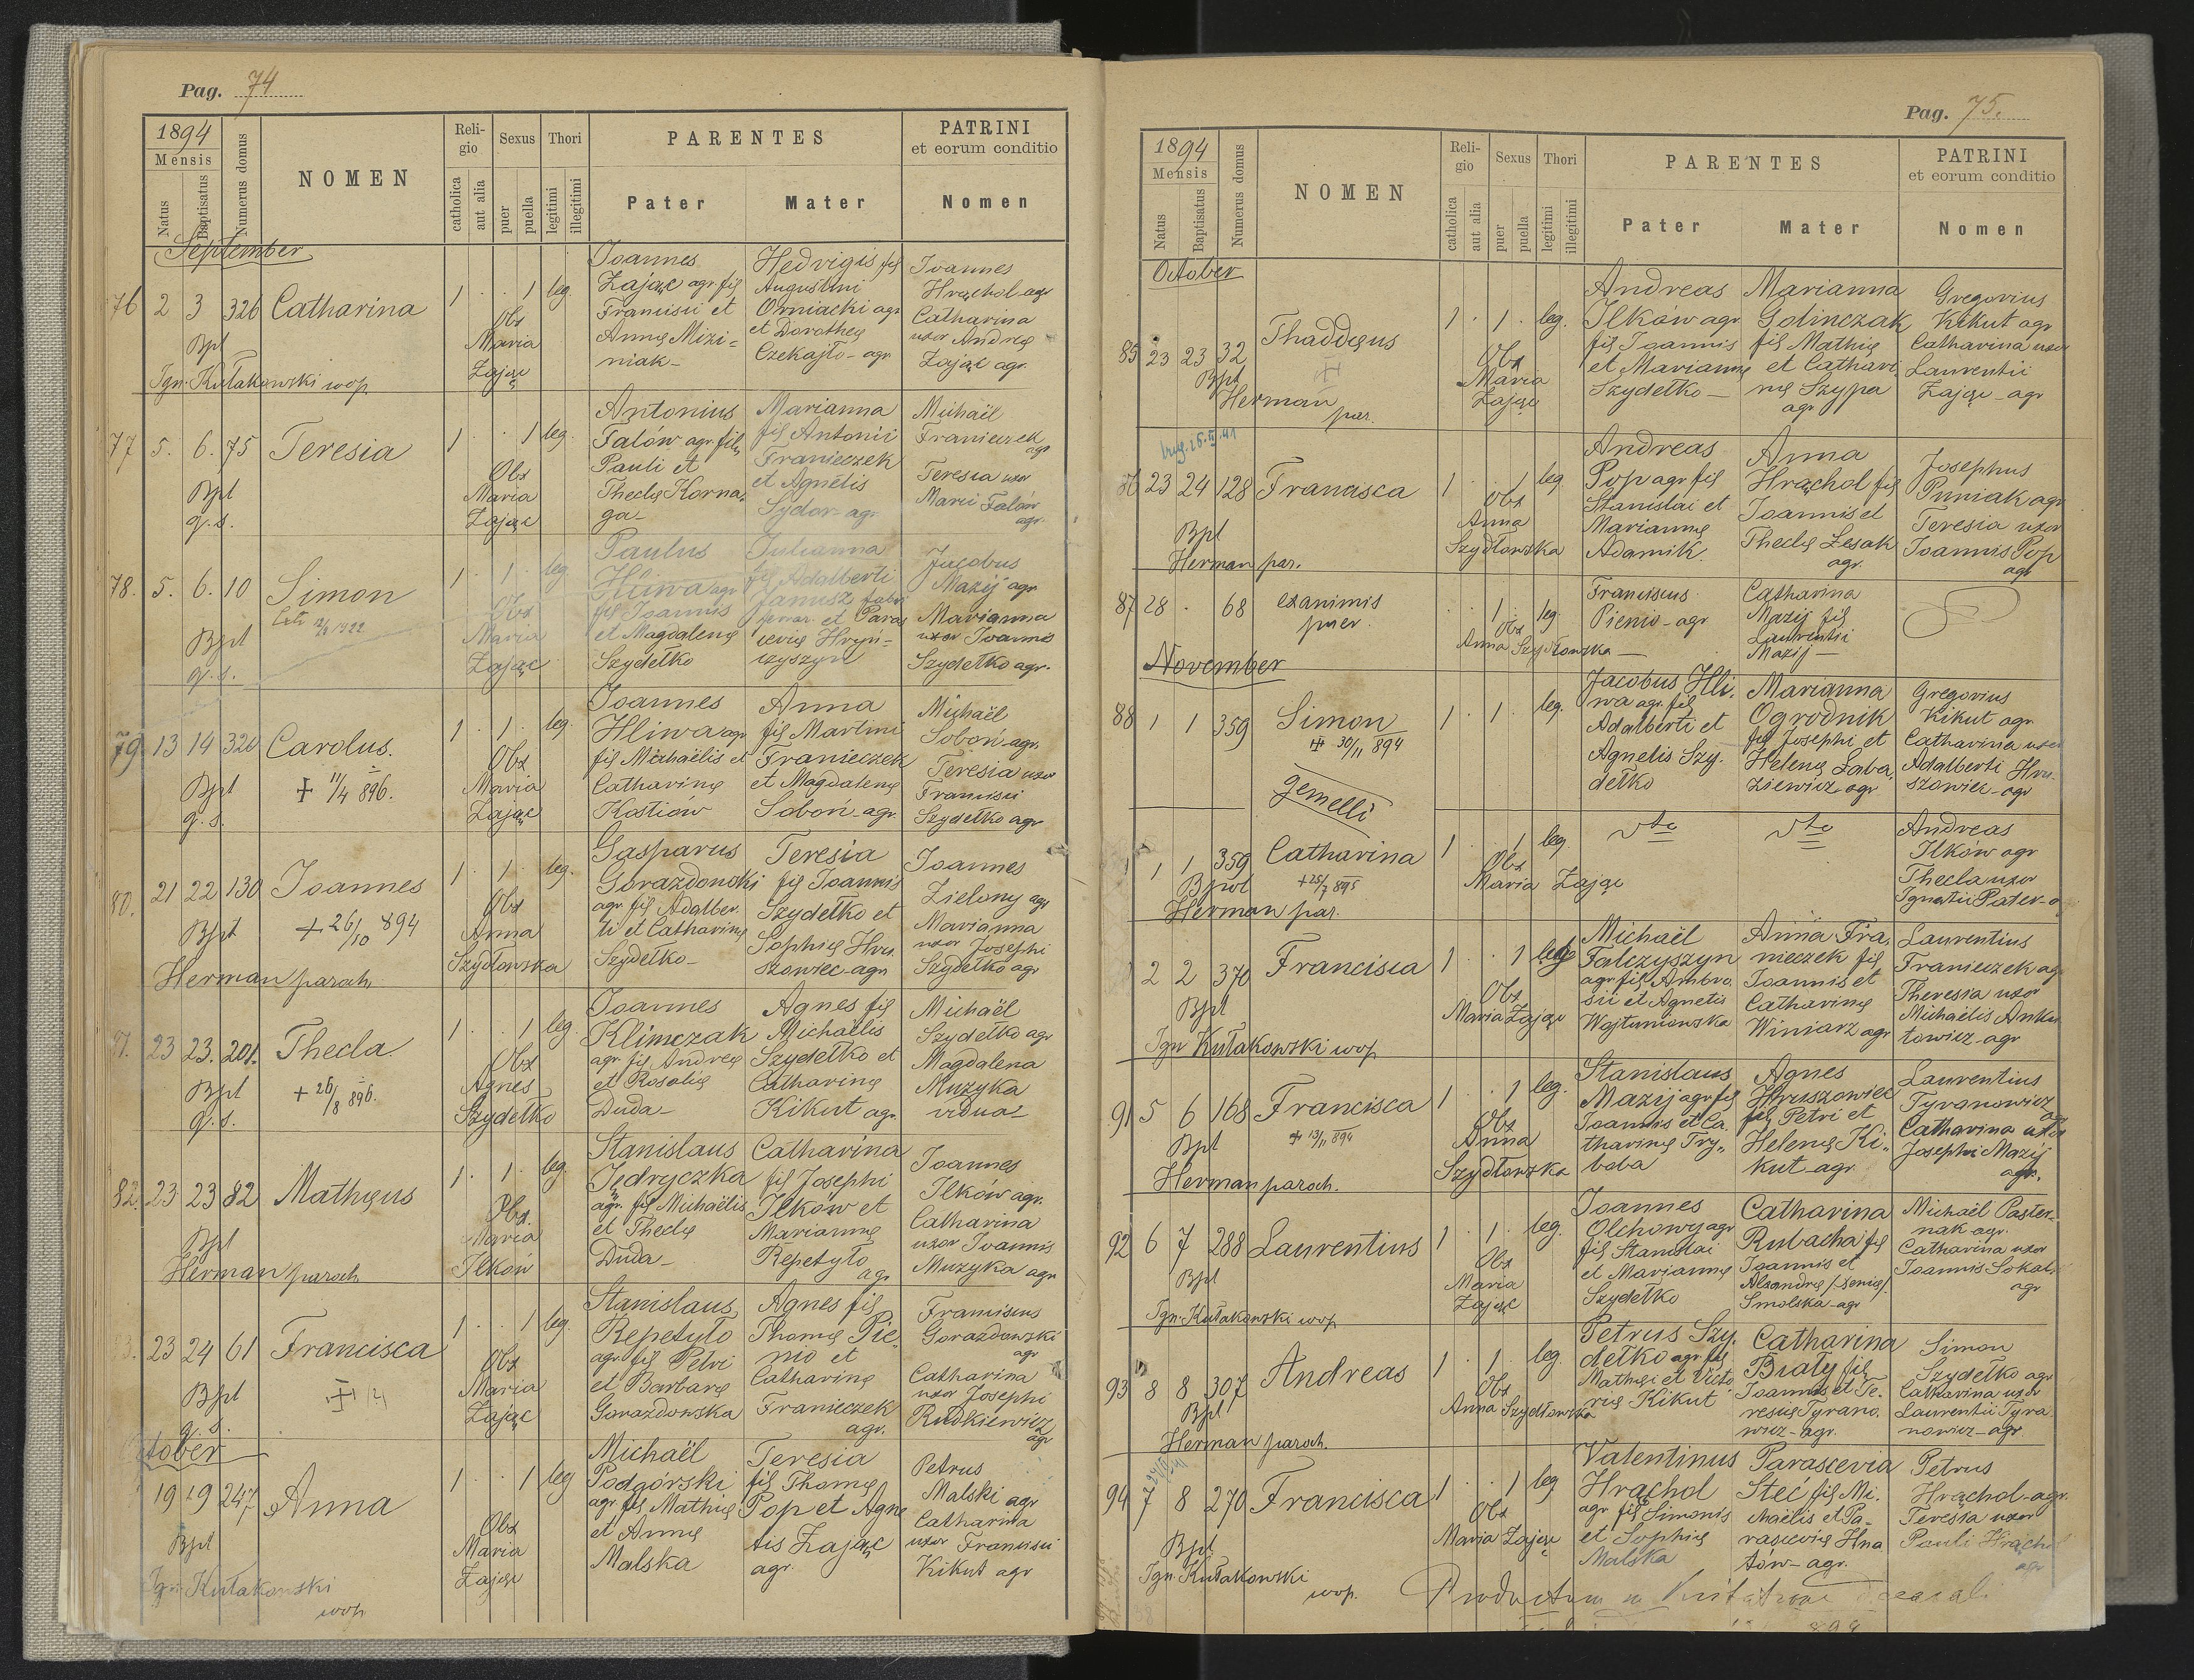 Pag. 74
1894
Mensis
Natus
Baptisatus
Numerus domus
NOMEN
Religio
catholica
aut alia
Sexus
puer
puella
Thori
legitimi
illegitimi
PARENTES
Pater
Mater
PATRINI
et eorum conditio
Nomen
September
76 2 3 326 Catharina 1 . . 1 leg.
Bpt
Ign. Kułakowski wop.
Obx
Maria
Zając
Joannes
Zając agr. fil
Francisci et
Annę Mizi=
niak -
Hedvigis fil
Augustini
Orniacki agr
et Dorotheę
Czekajło - agr
Joannes
Hrąchol agr
Catharina
uxor Andreę
Zając agr.
77 5. 6. 75 Teresia 1 . . 1 leg.
Bpt
q. s.
Obx
Maria
Zając
Antonius
Fałów agr. fil
Pauli et
Theclę Korna=
ga -
Marianna
fil Antonii
Franieczek
et Agnetis
Sydor - agr.
Michaël
Franieczek
agr
Teresia uxor
Marci Fałów
agr.
78. 5. 6. 10 Simon 1 . 1 . leg
Bpt
q. s.
Obx
Maria
Zając
Paulus
Hliwa agr
fil Joannis
et Magdalenę
Szydełko
Julianna
fil Adalberti
Janusz
et Paras
cevię Hryń=
czyszyn
Jacobus
Mazij agr
Marianna
uxor Joannis
Szydełko agr.
79 13 14 320 Carolus. 1 . 1 . leg.
Bpt + 11/4 896.
q. s.
Obx
Maria
Zając
Joannes
Hliwa agr
fil Michaëlis et
Catharinę
Kostiów
Anna
fil Martini
Franieczek
et Magdalenę
Soboń - agr.
Michaël
Soboń agr.
Teresia uxor
Francisci
Szydełko agr
80. 21 22 130 Joannes 1 . 1 . leg.
Bpt + 26/10 894
Herman paroch
Obx
Anna
Szydłowska
Gasparus
Gorazdowski
agr. fil Adalber.
ti et Catharinę
Szydełko -
Teresia
fil Joannis
Szydełko et
Sophię Hru.
szowiec - agr
Joannes
Zielony agr
Marianna
uxor Josephi
Szydełko agr
81. 23 23. 201. Thecla. 1 . . 1 leg.
Bpt + 26/8 896.
q. s.
Obx
Agnes
Szydełko
Joannes
Klimczak
agr. fil Andreę
et Rosalię
Duda -
Agnes fil
Michaëlis
Szydełko et
Catharinę
Kikut agr.
Michaël
Szydełko agr
Magdalena
Muzyka
vidua
82. 23 23 82 Mathęus 1 . 1 . leg.
Bpt
Herman paroch
Obx.
Maria
Ilków
Stanislaus
Jędryczka
agr. fil Michaëlis
et Theclę
Duda -
Catharina
fil Josephi
Ilków et
Mariannę
Repetyło
agr
Joannes
Ilków agr.
Catharina
uxor Joannis
Muzyka agr
83. 23 24 61 Francisca 1 . . 1 leg.
Bpt
q. s.
Obx
Maria
Zając
Stanislaus
Repetyło
agr. fil Petri
et Barbarę
Gorazdowska
Agnes fil
Thomę Pie.
nio et
Catharinę
Franieczek
agr.
Franciscus
Gorazdowski
agr
Catharina
uxor Josephi
Rudkiewicz
agr
October
19 19 247 Anna 1 . . 1 leg
Bpt
Ign. Kułakowski
wop
Obx
Maria
Zając
Michaël
Podgórski
agr. fil Mathię
et Annę
Malska
Teresia
fil Thomę
Pop et Agne
tis Zając
agr.
Petrus
Malski agr
Catharina
uxor Francisci
Kikut agr
Pag. 75.
1894
Mensis
Natus
Baptisatus
Numerus domus
NOMEN
Religio
catholica
aut alia
Sexus
puer
puella
Thori
legitimi
illegitimi
PARENTES
Pater
Mater
PATRINI
et eorum conditio
Nomen
October
85 23 23 32 Thaddęus 1 . 1 . leg.
Bpt
Herman
par.
Obx
Maria
Zając
Andreas
Ilków agr
fil Joannis
et Mariannę
Szydełko -
Marianna
Golinczak
fil Mathię
et Cathari
nę Szypa
agr
Gregorius
Kikut agr
Catharina uxor
Laurentii
Zając - agr
86 23 24 128 Francisca 1 . . 1 leg
Bpt
Herman par.
Obx
Anna
Szydłowska
Andreas
Pop agr fil
Stanislai et
Mariannę
Adamik.
Anna
Hrąchol fil
Joannis et
Theclę Lesak
agr.
Josephus
Puniak agr
Teresia uxor
Joannis Pop
agr
87 28 . 68 exanimis
puer.
1 . leg
Obx
Anna Szydłowska
Franciscus
Pienio - agr
Catharina
Mazij fil
Laurentii
Mazij -
November
88 1 1 359 Simon 1 . 1 . leg.
+ 30/11 894
Jacobus Hli.
wa agr. fil
Adalberti et
Agnetis Szy.
dełko
Marianna
Ogrodnik
fil Josephi et
Helenę Łaba,
ziewicz agr
Gregorius
Kikut agr
Catharina uxor
Adalberti Hru.
szowiec - agr
gemelli
1 1 359 Catharina 1 . . 1 leg.
Bpt + 25/7 895
Herman par.
Obx
Maria Zając
Andreas
Ilków agr
Thecla uxor
Ignatii Pater
2 2 370 Francisca 1 . . 1 leg
Bpt
Ign Kułakowski wop
Obx
Maria Zając
Michaël
Falczyszyn
agr fil Ambro.
sii et Agnetis
Wojtunowska
Anna Fra,
nieczek fil
Joannis et
Catharinę
Winiarz agr
Laurentius
Franieczek agr
Theresia uxor
Michaëlis Anko
towicz - agr
91 5 6 168 Francisca 1 . . 1 leg.
Bpt + 13/11 894
Herman paroch.
Obx
Anna
Szydłowska
Stanislaus
Mazij agr fil
Joannis et Ca.
tharinę Try.
boba
Agnes
Hruszowiec
fil Petri et
Helenę Ki.
kut - agr
Laurentius
Tyranowicz
agr
Catharina uxor
Josephi Mazij
agr.
92 6 7 288 Laurentius 1 . 1 . leg.
Bpt
Ign. Kułakowski wop
Obx
Maria
Zając
Joannes
Olchowy agr
fil Stanislai
et Mariannę
Szydełko
Catharina
Rubacha fil
Joannis et
Alxandrę
Smolska - agr
Michaël Paster.
nak agr.
Catharina uxor
Joannis Sokal
agr
93 8 8 307 Andreas 1 . 1 . leg.
Bpt
Herman paroch.
Obx
Anna Szydłowska
Petrus Szy.
dełko agr fil
Mathęi et Victo
rię Kikut
Catharina
Biały fil
Joannis et Te.
resię Tyrano.
wicz - agr.
Simon
Szydełko agr
Catharina uxor
Laurentii Tyra
nowicz - agr
94 7 8 270 Francisca 1 . . 1 leg
Bpt
Ign. Kułakowski
wop.
Obx
Maria Zając
Valentinus
Hrąchol
agr fil Simonis
et Sophię
Malska
Parascevia
Stec fil Mi.
chaëlis et Pa-
rascevię Hna
tów - agr.
Petrus
Hrąchol - agr.
Teresia uxor
Pauli Hrąchol
agr
Productum in